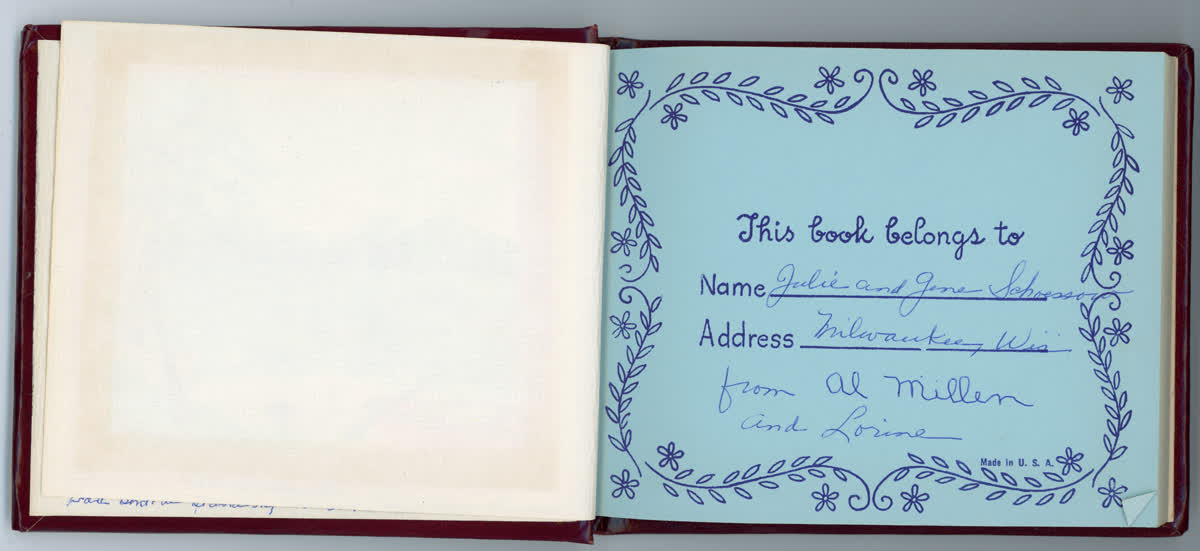 This book belongs to
Name Julie and Gene Schoessow
Address Milwaukee, Wis
from Al Millen
and Lorine
Made in U. S. A.